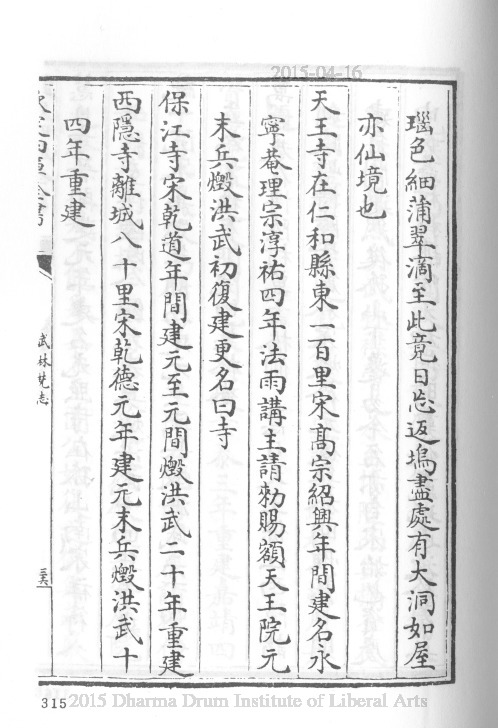 2015-04-16
瑙色細蒲翠滴至此竟日忘返塢盡處有大洞如屋
亦仙境也
天王寺在仁和縣東一百里宋髙宗紹興年間建名永
寧菴理宗淳祐四年法雨講主請勅賜額天王院元
末兵燬洪武初復建更名曰寺
保江寺宋乾道年間建元至元間燬洪武二十年重建
西隱寺離城八十里宋乾德元年建元末兵燬洪武十
四年重建
武林梵志
三六
315
2015 Dharma Drum Institute of Liberal Arts